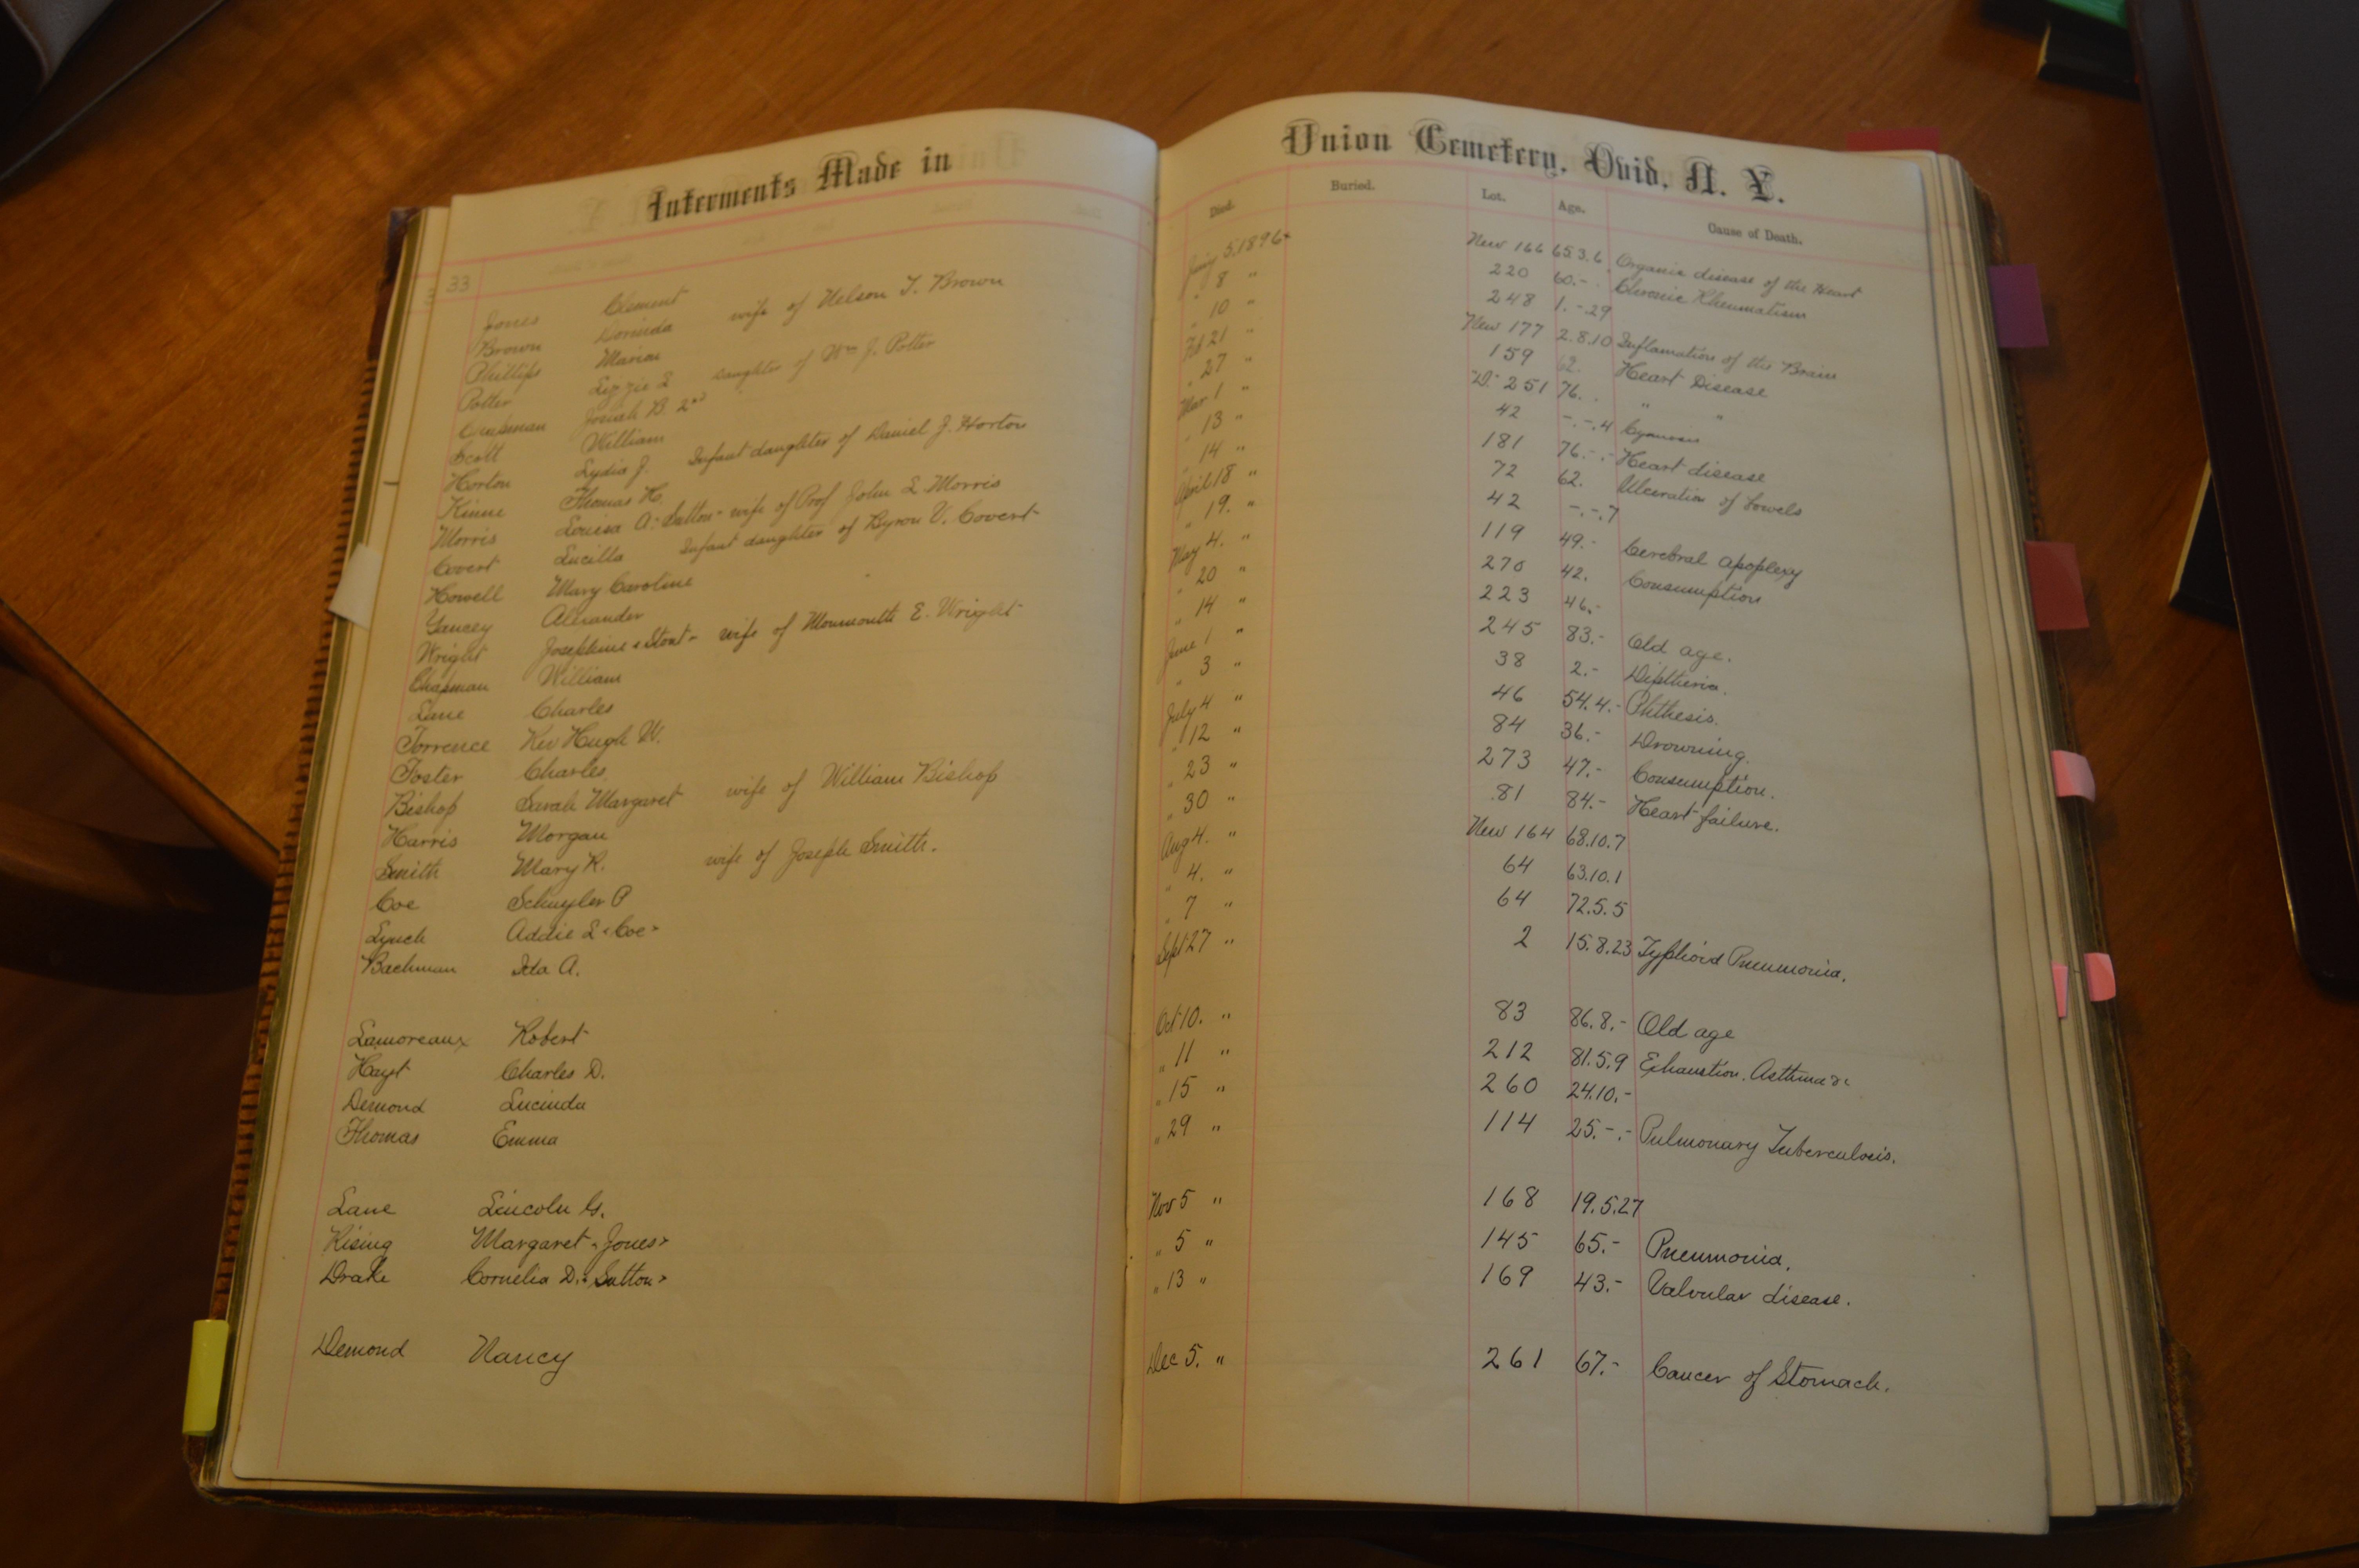 Interments Made in
33
Jones Clement
Brown Dorinda wife of Nelson T. Brown
Phillips Marion
Potter Lizzie L daughter of Wm J. Potter
Chapman Josiah B. 2nd
Scott William
Horton Lydia J. Infant daughter of Daniel J. Horton
Kinne Thomas H.
Morris Louisa A. Sutton - wife of Prof John L Morris
Covert Lucilla Infant daughter of Byron V. Covert
Howell Mary Caroline
Yancey Alexander
Wright Josephine "Stout" wife of Monmouth E. Wright
Chapman William
Lane Charles
Torrence Rev Hugh W.
Foster Charles
Bishop Sarah Margaret wife of William Bishop
Harris Morgan
Smith Mary R. wife of Joseph Smith.
Coe Schuyler P
Lynch Addie L "Coe"
Bachman Ida A.
Lamoreaux Robert
Hayt Charles D.
Demond Lucinda
Thomas Emma
Lane Lincoln G.
Rising Margaret "Jones"
Drake Cornelia D. "Sutton"
Demond Nancy
Union Cemetery, Ovid, N. Y.
Died. Buried. Lot. Age. Cause of Death.
Jany 5, 1896 New 166 65.3.6. Organic disease of the Heart
" 8 " 220 60.- Chronic Rheumatism
" 10 " 248 1.-.29
Feb 21 " New 177 2.8.10 Inflamation of the Brain
" 27 " 159 62. Heart Disease
Mar 1 " "D" 251 76. " "
" 13 " 42 -.-.4 Cyanosis
" 14 " 181 76.-.- Heart disease
April 18 " 72 62. Ulceration of bowels
" 19. " 42 -.-.7
May 4. " 119 49.- Cerebral apoplexy
" 20 " 270 42. Consumption
" 14 " 223 46.-
June 1 " 245 83.- Old age.
" 3 " 38 2.- Diptheria.
July 4 " 46 54.4.- Phthesis.
" 12 " 84 36.- Drowning.
" 23 " 273 47.- Consumption.
" 30 " 81 84.- Heart failure.
Aug 4. " New 164 68.10.7
" 4. " 64 63.10.1
" 7 " 64 72.5.5
Sept 27 " 2 15.8.23 Typhoid Pneumonia.
Oct 10. " 83 86.8.- Old age
" 11 " 212 81.5.9 Exhaustion. Asthma &c
" 15 " 260 24.10.-
" 29 " 114 25.-.- Pulmonary Tuberculosis.
Nov 5 " 168 19.5.27
" 5 " 145 65.- Pneumonia.
" 13 " 169 43.- Valvular disease.
Dec 5. " 261 67.- Cancer of Stomach.